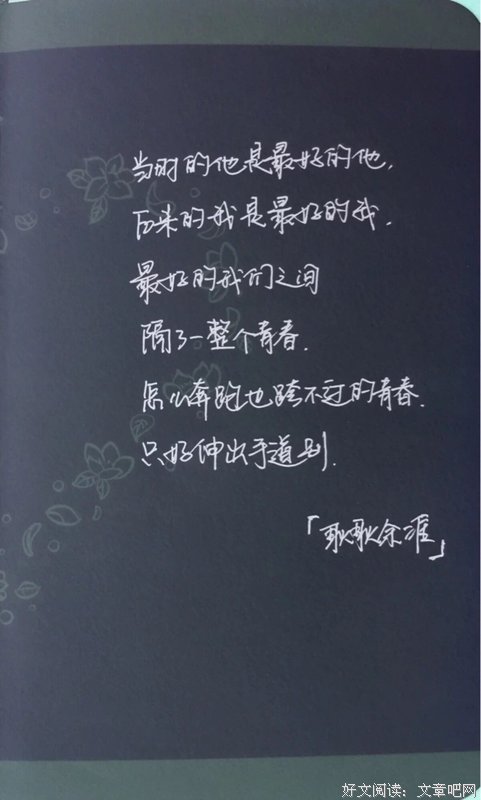 当时的他是最好的他,
后来的我是最好的我.
最好的我们之间
隔了一整个青春.
怎么奔跑也跨不过的青春.
只好伸出手道别.
「耿耿余淮」
好文阅读：文章吧网